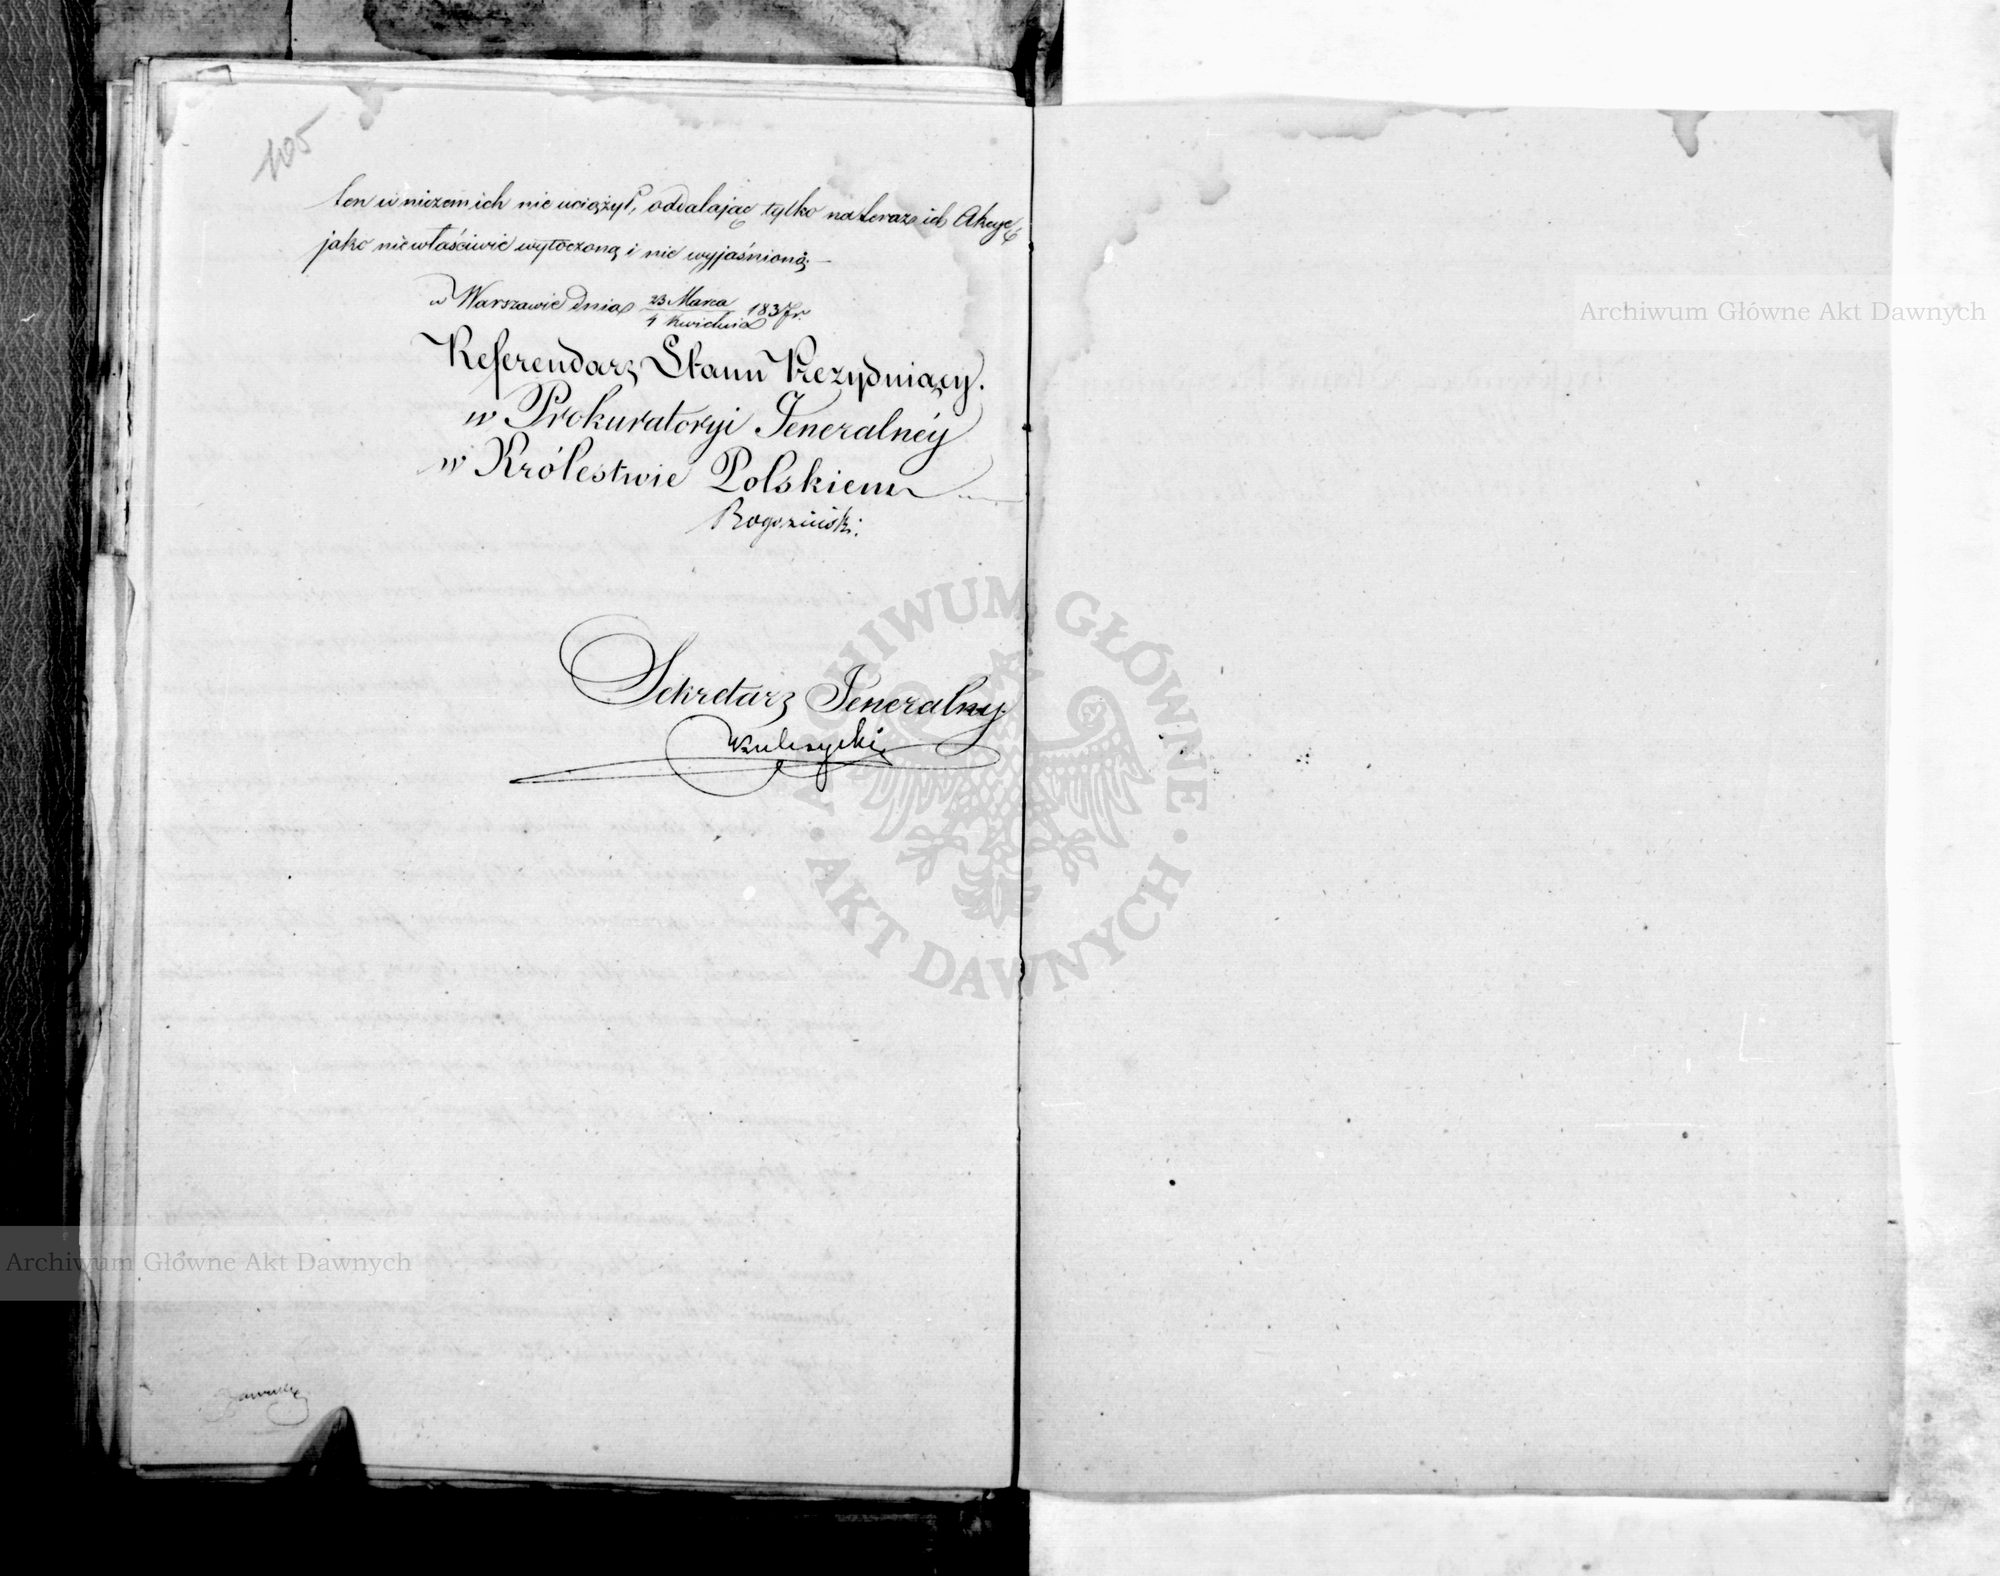 105
ten w niczem ich nie uciążył, oddalając tylko na teraz ich Akcyę
jako niewłaściwie wytoczoną i nie wyjaśnioną. —
w Warszawie dnia 23 Marca / 4 Kwietnia 1837 r.
Referendarz Stanu Prezyduiący.
w Prokuratoryi Jeneralnéy
w Królestwie Polskiem
Rogoziński.
Sekretarz Jeneralny
Kulczycki
Archiwum Główne Akt Dawnych
Archiwum Główne Akt Dawnych
ARCHIWUM GŁÓWNE · AKT DAWNYCH ·